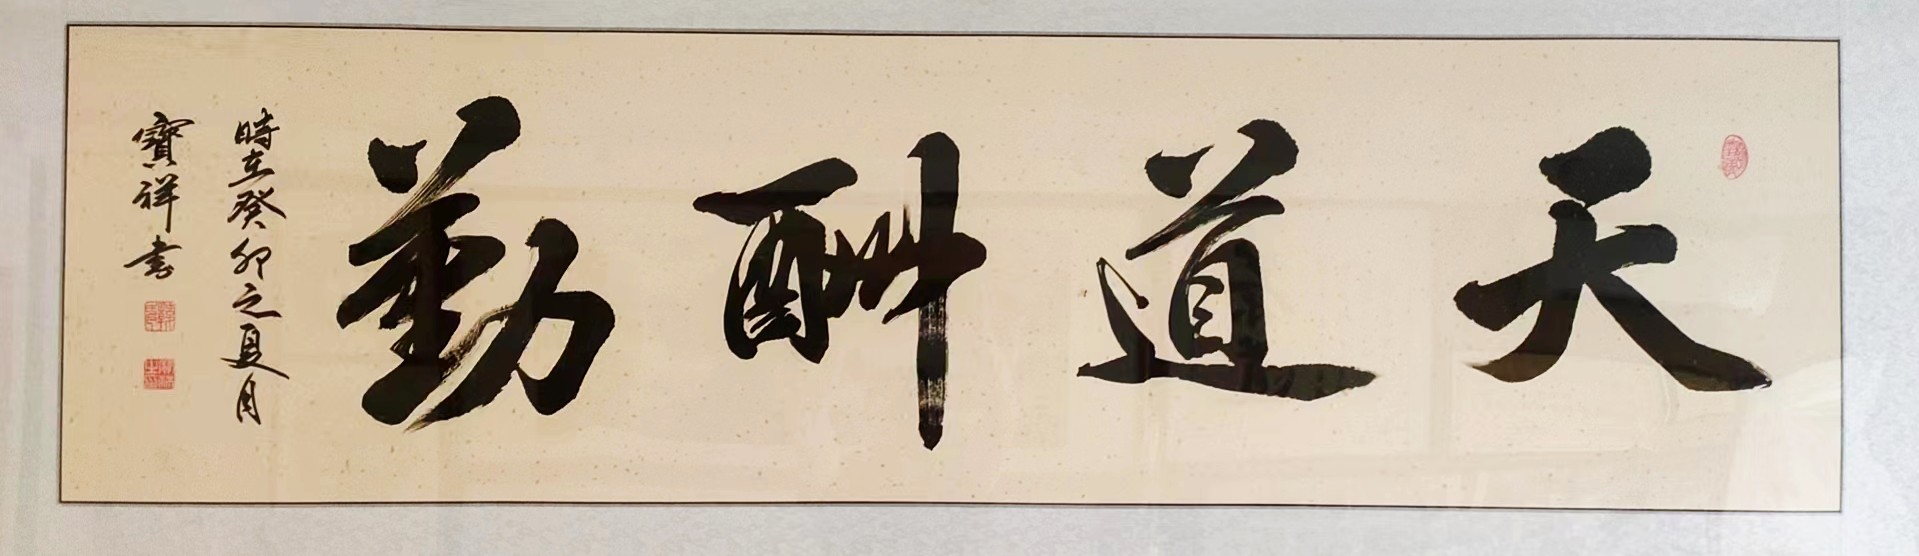 天道酬勤
時在癸卯之夏月
寶祥書